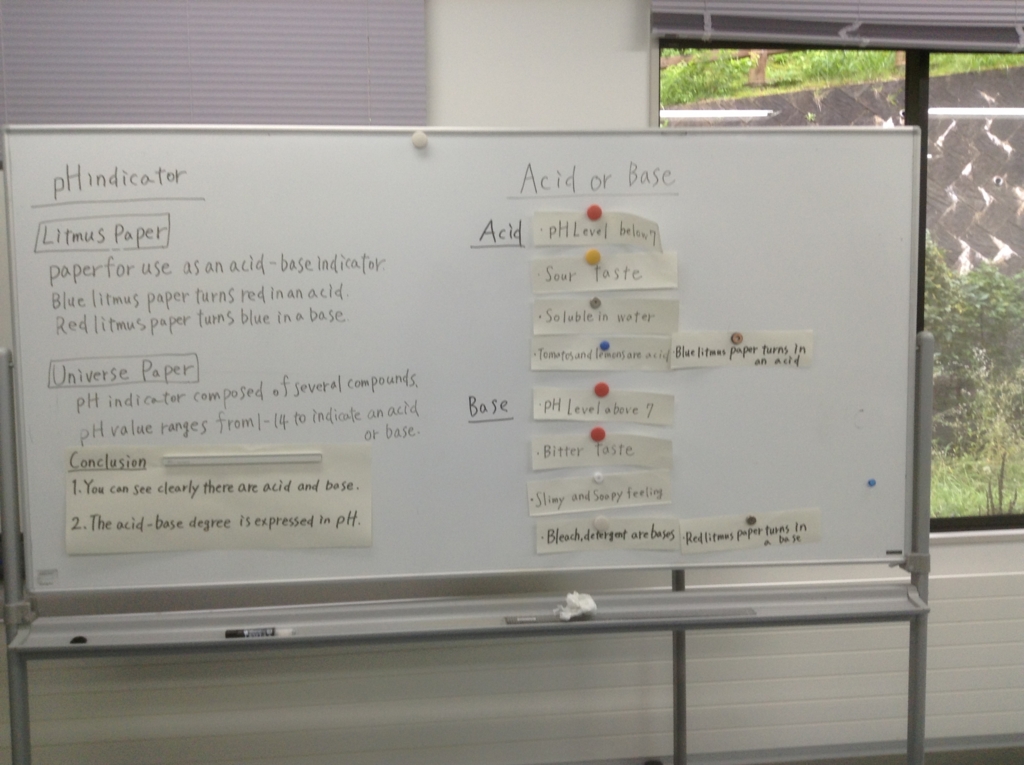 pH indicator
Litmus Paper
paper for use as an acid-base indicator.
Blue litmus paper turns red in an acid.
Red litmus paper turns blue in a base.
Universe Paper
pH indicator composed of several compounds.
pH value ranges from 1-14 to indicate an acid
or base.
Conclusion
1. You can see clearly there are acid and base.
2. The acid-base degree is expressed in pH.
Acid or Base
Acid
・pH Level below 7
・Sour taste
・Soluble in water
・Tomatos and lemons are acid
・Blue litmus paper turns in
an acid
Base
・pH Level above 7
・Bitter taste
・Slimy and Soapy feeling
・Bleach, detergent are bases
・Red litmus paper turns in
a base